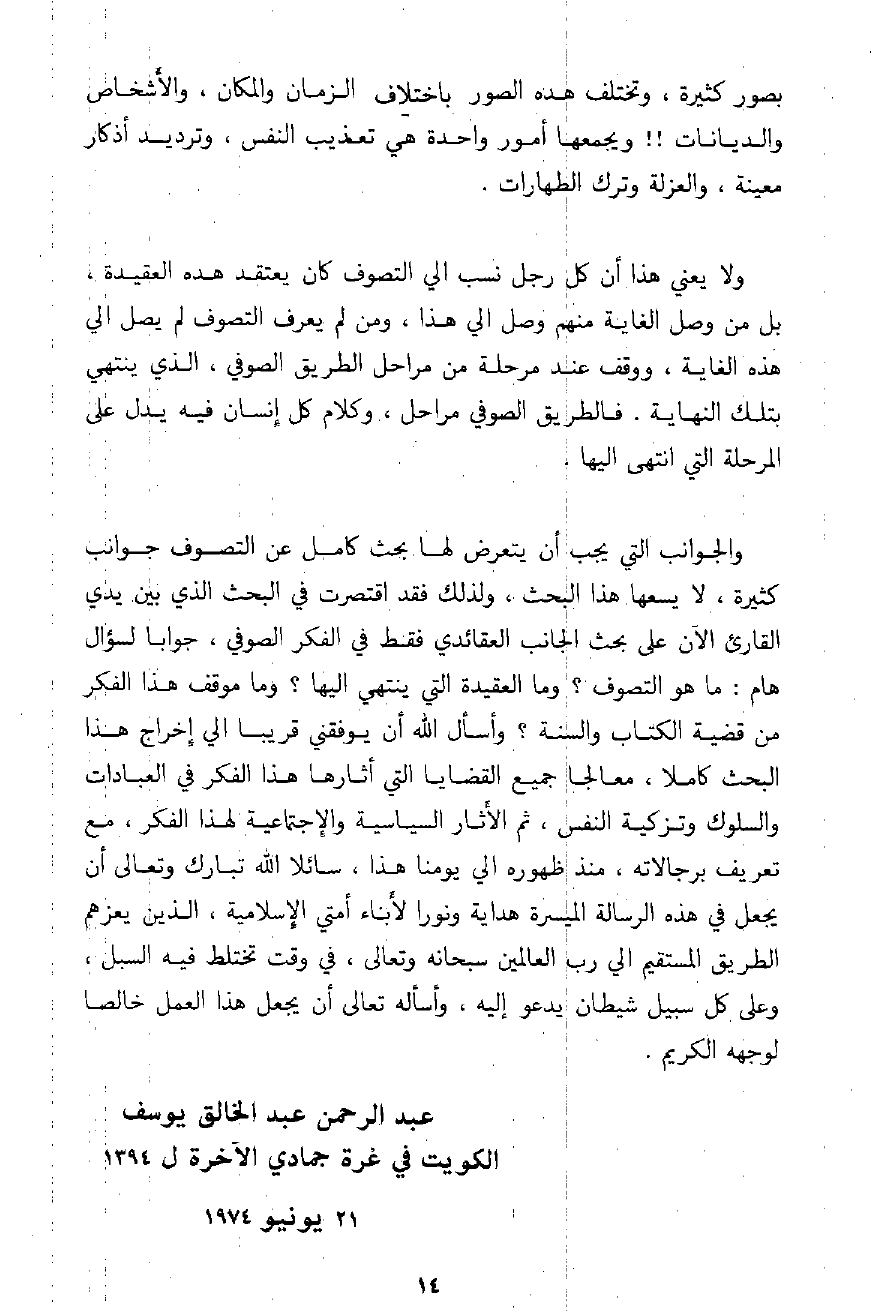 بصور كثيرة ، وتختلف هذه الصور باختلاف الزمان والمكان ، والأشخاص
والديانات !! ويجمعها أمور واحدة هي تعذيب النفس ، وترديد أذكار
معينة ، والعزلة وترك الطهارات .
ولا يعني هذا أن كل رجل نسب الي التصوف كان يعتقد هذه العقيدة ،
بل من وصل الغاية منهم وصل الي هذا ، ومن لم يعرف التصوف لم يصل الي
هذه الغاية ، ووقف عند مرحلة من مراحل الطريق الصوفي ، الذي ينتهي
بتلك النهاية . فالطريق الصوفي مراحل ، وكلام كل إنسان فيه يدل على
المرحلة التي انتهى اليها .
والجوانب التي يجب أن يتعرض لها بحث كامل عن التصوف جوانب
كثيرة ، لا يسعها هذا البحث ، ولذلك فقد اقتصرت في البحث الذي بين يدي
القارئ الآن على بحث الجانب العقائدي فقط في الفكر الصوفي ، جوابا لسؤال
هام : ما هو التصوف ؟ وما العقيدة التي ينتهي اليها ؟ وما موقف هذا الفكر
من قضية الكتاب والسنة ؟ وأسأل الله أن يوفقني قريبا الي إخراج هذا
البحث كاملا ، معالجا جميع القضايا التي أثارها هذا الفكر في العبادات
والسلوك وتزكية النفس ، ثم الأثار السياسية والإجتماعية لهذا الفكر ، مع
تعريف برجالاته ، منذ ظهوره الي يومنا هذا ، سائلا الله تبارك وتعالى أن
يجعل في هذه الرسالة الميسرة هداية ونورا لأبناء أمتي الإسلامية ، الذين يعزهم
الطريق المستقيم الي رب العالمين سبحانه وتعالى ، في وقت تختلط فيه السبل ،
وعلى كل سبيل شيطان يدعو إليه ، وأسأله تعالى أن يجعل هذا العمل خالصا
لوجهه الكريم .
عبد الرحمن عبد الخالق يوسف
الكويت في غرة جمادي الآخرة ل ١٣٩٤
٢١ يونيو ١٩٧٤
١٤